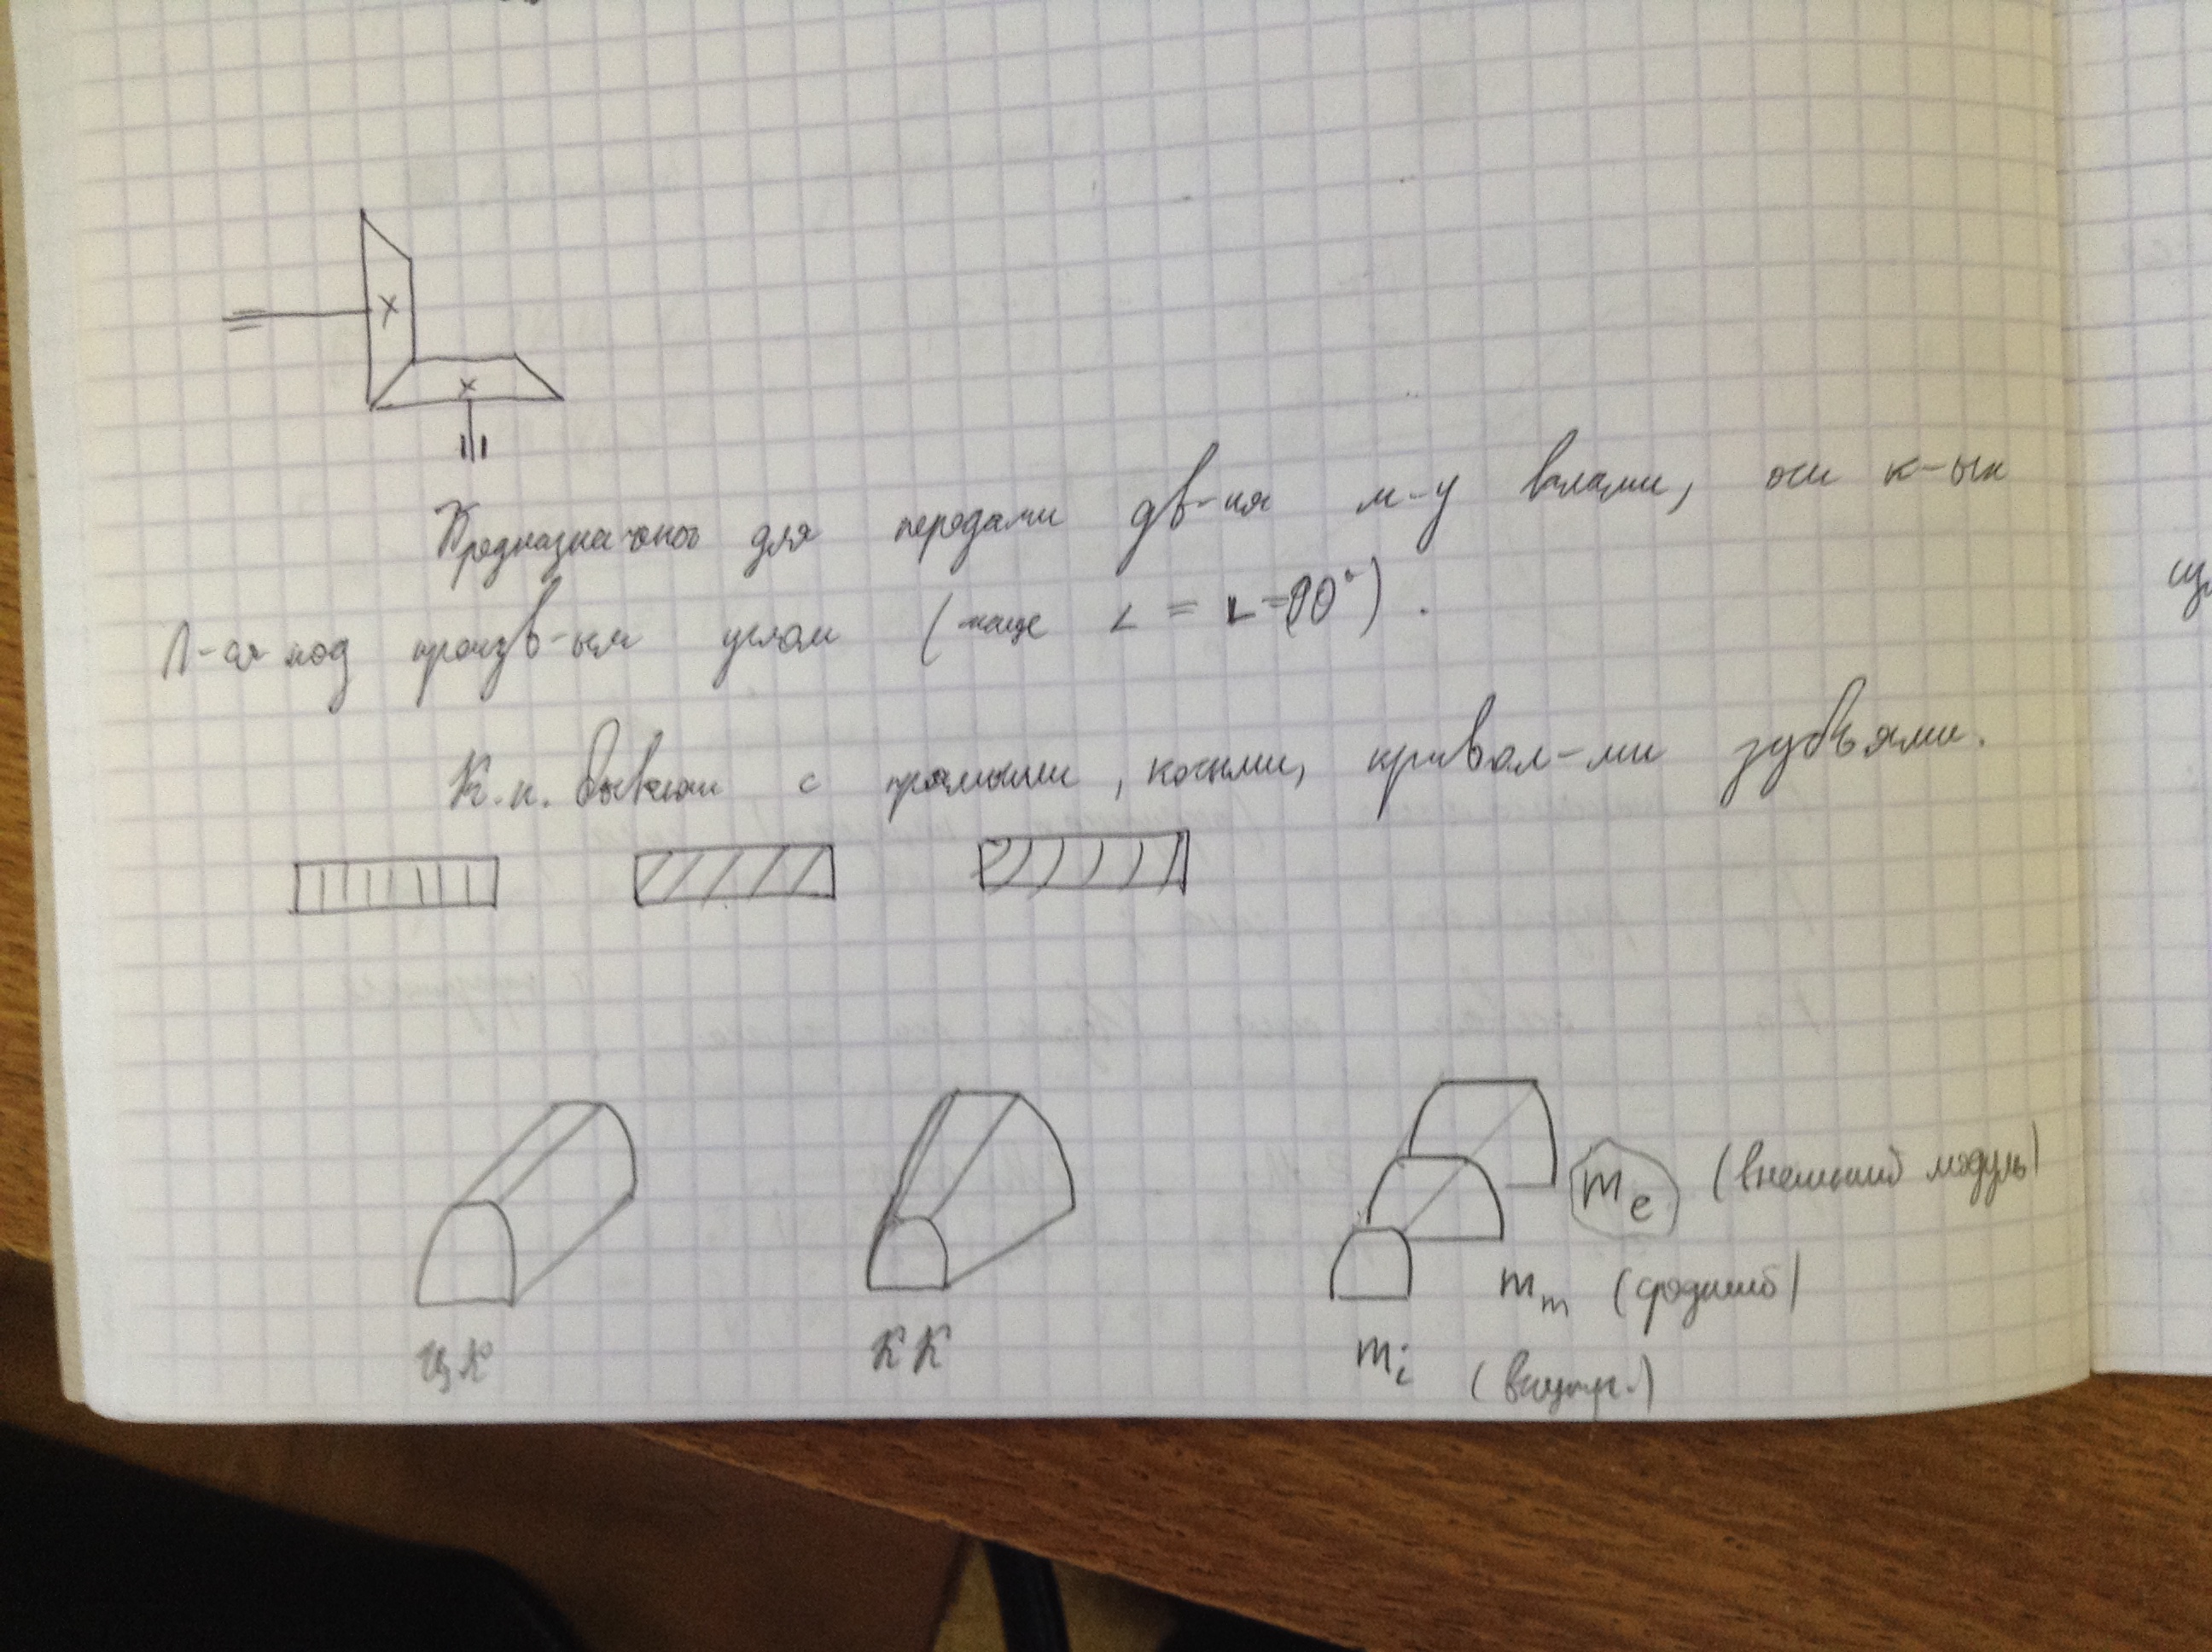 Предназначены для передачи дв-ия м-у валами, оси к-ых
Л-ся под произв-ым углом (чаще ∠ = ∟=90°).
К.п. бывают с прямыми, косыми, кривол-ми зубьями.
me (внешний модуль)
mm (средний)
mi (внутр.)
ЦК КК